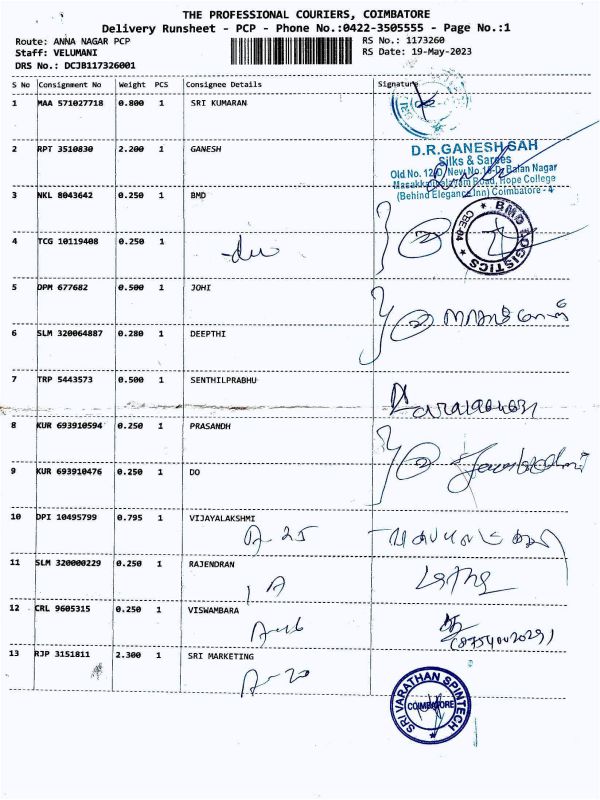 THE PROFESSIONAL COURIERS, COIMBATORE
Delivery Runsheet - PCP - Phone No.:0422-3505555 - Page No.:1
Route: ANNA NAGAR PCP RS No.: 1173260
Staff: VELUMANI RS Date: 19-May-2023
DRS No.: DCJB117326001
S No Consignment No Weight PCS Consignee Details Signature
1 MAA 571027718 0.800 1 SRI KUMARAN
SRI
2 RPT 3510830 2.200 1 GANESH
D.R.GANESH SAH
Silks & Sarees
Old No. 12/D, New No. Balan Nagar
Masakkalipalayam Road, Hope College
(Behind Elegance Inn) Coimbatore - 4
3 NKL 8043642 0.250 1 BMD
BMD LOGISTICS CBE-04
4 TCG 10119408 0.250 1
5 DPM 677682 0.500 1 JOHI
6 SLM 320064887 0.280 1 DEEPTHI
7 TRP 5443573 0.500 1 SENTHILPRABHU
8 KUR 693910594 0.250 1 PRASANDH
9 KUR 693910476 0.250 1 DO
10 DPI 10495799 0.795 1 VIJAYALAKSHMI
A-25
11 SLM 320000229 0.250 1 RAJENDRAN
1 A
12 CRL 9605315 0.250 1 VISWAMBARA
A-16
(8754002029)
13 RJP 3151811 2.300 1 SRI MARKETING
A-20
SRI VARATHAN SPINTECH
COIMBATORE